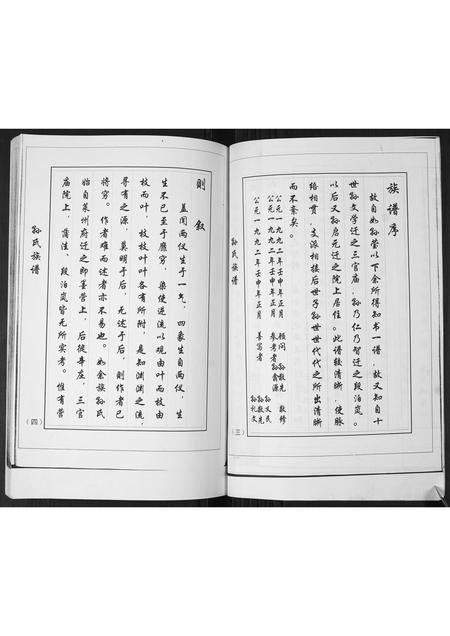 族谱序
故自始孙荣以下余所得知书一谱，故又知自十
世孙文学迁之三官庙，孙乃仁乃智迁之段泊岚。
以后又孙启元迁之院上居住。此谱较清晰，使脉
络相贯，支派相接后世子孙世世代代之所出清晰
而不紊矣。
公元一九九二年壬申年正月 顾问 孙敬先 敬修
公元一九九二年壬申年正月 参考者 孙禽源 孙文民
公元一九九二年壬申年正月 善写者 孙敬先 孙礼文
孙氏族谱
（三）
则 叙
盖闻两仪生于一气，四象生自两仪，生
生不已至于靡穷，梁使逆流以观由叶而枝由
枝而叶，枝枝叶叶各有所附，是知渊渊之流，
寻有之源，莫明于后，无述于后，则作者已
将穷。作者难而述者亦不易也。如余族孙氏
始自莱州府迁之即墨营上，后徙辛庄，三官
庙院上，蒲洼、段泊岚皆无所实考。惟有营
孙氏族谱
（四）